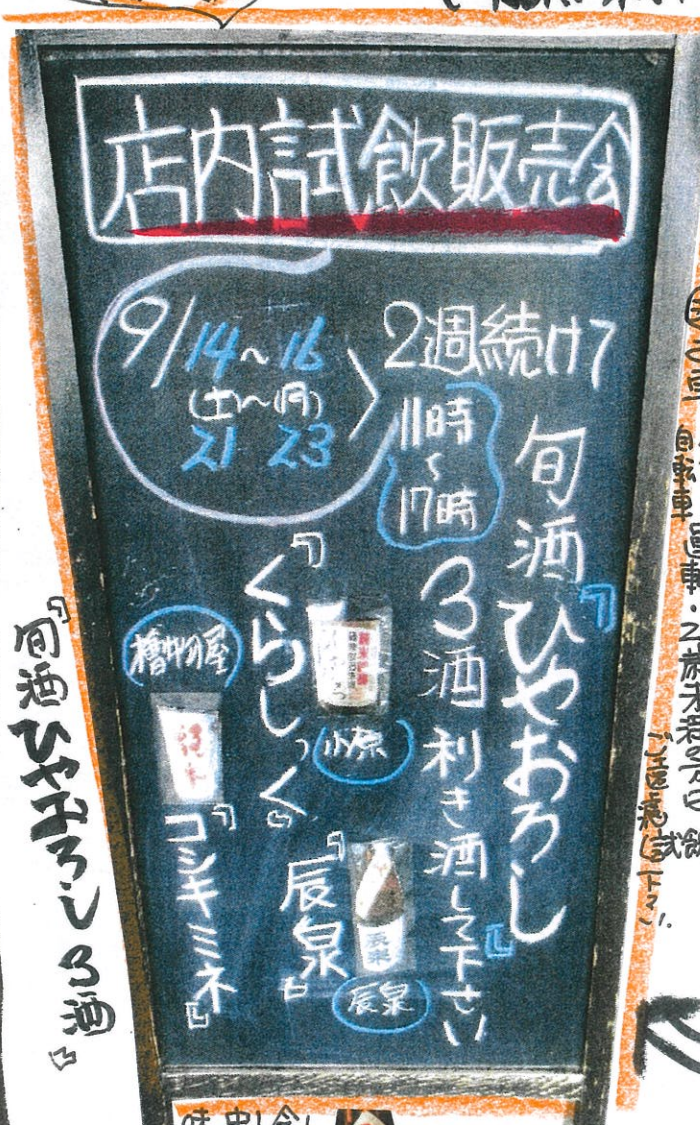 店内試飲販売会
9/14～16
(土～月)
21 23
2週続けて
11時
～
17時
旬酒『ひやおろし』
3酒 利き酒して下さい
『くらしっく』
小原
『辰泉』
辰泉
檜物屋
『コシキミネ』
『旬酒ひやおろし3酒』
自転車運転・
ご遠慮下さい.
試飲